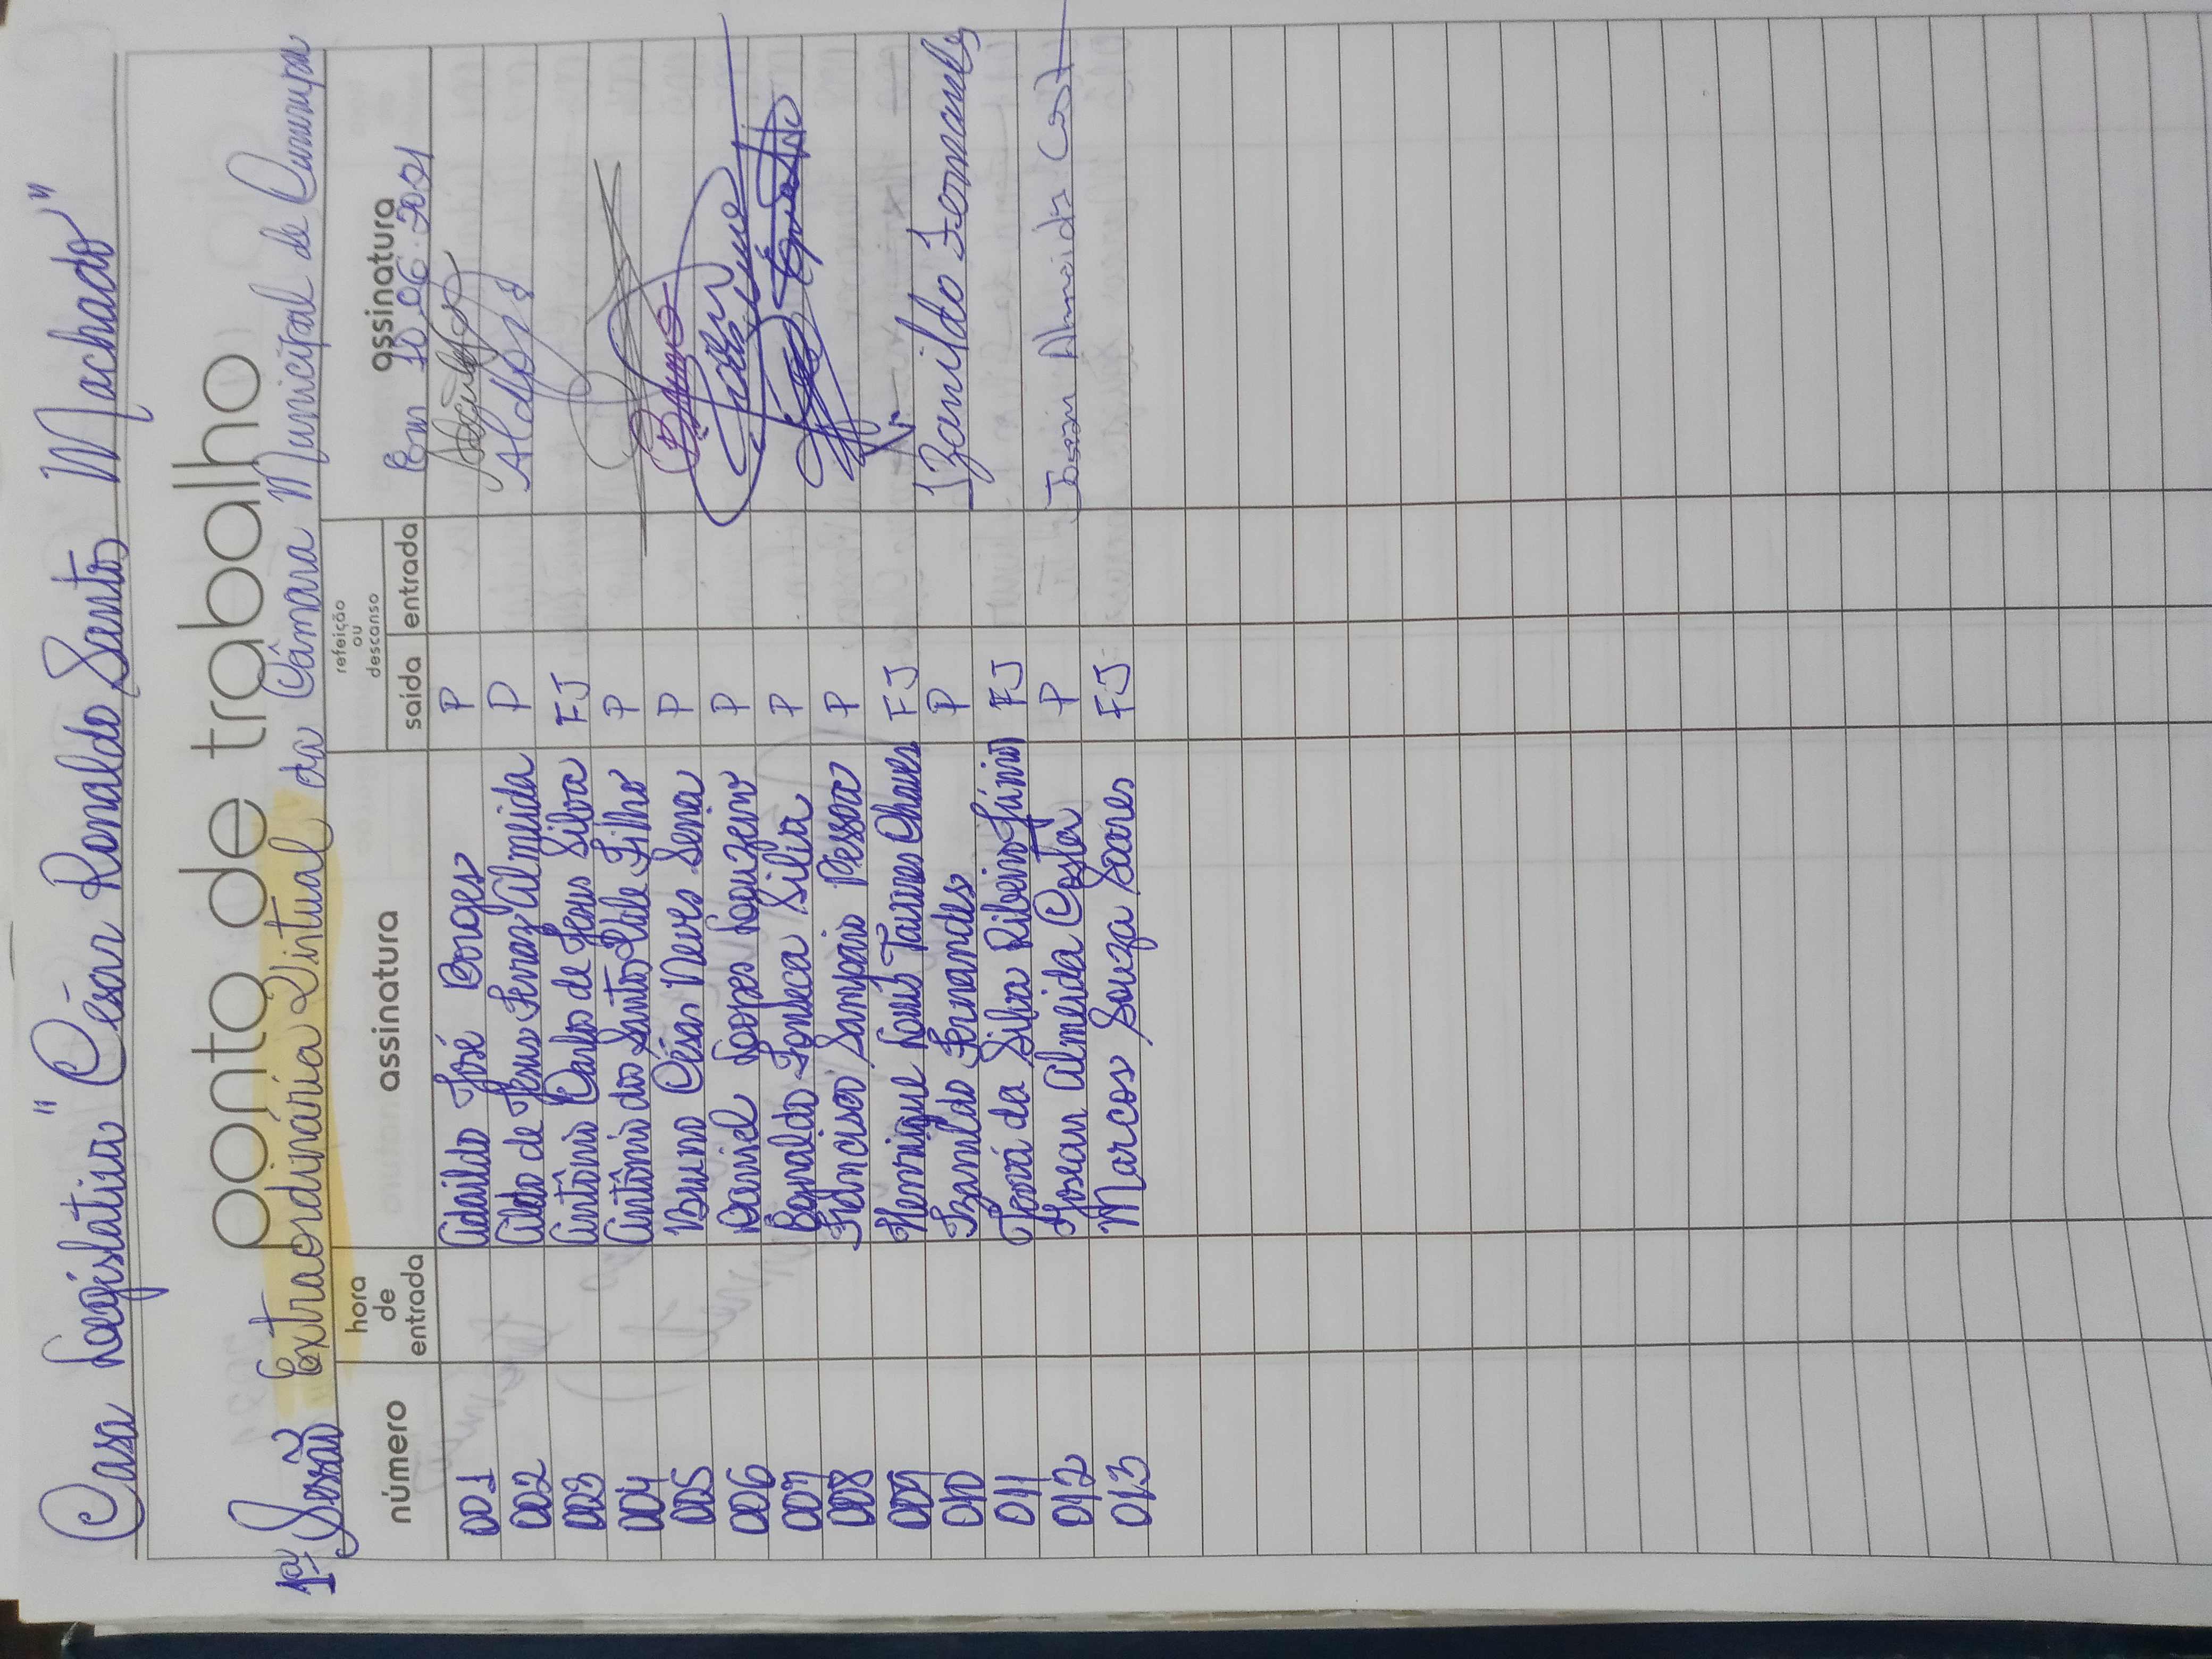 Casa Legislativa "César Ronaldo Santos Machado"
ponto de trabalho
1ª Sessão Extraordinária Virtual da Câmara Municipal de
número hora de entrada assinatura refeição ou descanso saída entrada assinatura
Em 10.06.2021
001 Adaildo José Borges P
002 Aldo de Jesus Ferraz Almeida P Aldo
003 Antônio Carlos de Jesus Silva FJ
004 Antônio dos Santos Filho P
005 Bruno César Neves Sena P Bruno
006 Daniel Lopes P
007 Fonseca Silva P
008 Francisco Sampaio Pessoa P
009 Henrique Tavares Chaves FJ
010 Izanildo Fernandes P Izanildo Fernandes
011 da Silva Ribeiro Júnior FJ
012 Josean Almeida Costa P Josean Almeida Costa
013 Marcos Souza Soares FJ